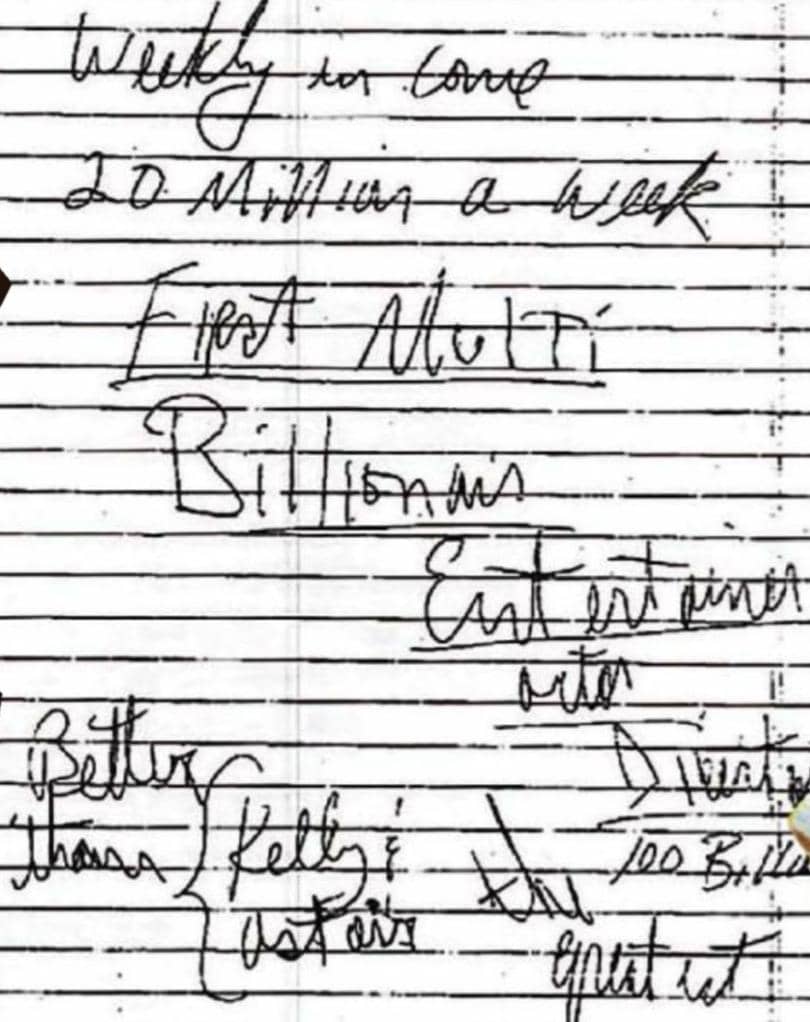 Weekly in come
20 Million a week
First Multi
Billionair
Entertainer
actor
Better
than
Kelly &
astair
Direct
100 Billi
the
greatest